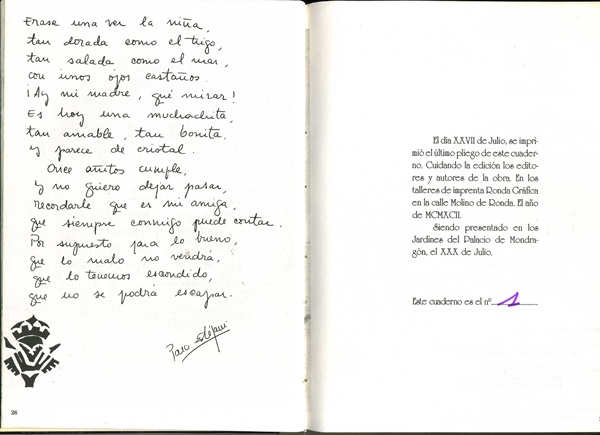 Erase una vez la niña,
tan dorada como el trigo,
tan salada como el mar,
con unos ojos castaños.
¡Ay mi madre, qué mirar!
Es hoy una muchachita,
tan amable, tan bonita.
y parece de cristal.
Once añitos cumple,
y no quiero dejar pasar,
recordarle que es mi amiga,
que siempre conmigo puede contar.
Por supuesto para lo bueno,
que lo malo no vendrá,
que lo tenemos escondido,
que no se podrá escapar.
Paco
26
El día XXVII de Julio, se impri-
mió el último pliego de este cuader-
no. Cuidando la edición los edito-
res y autores de la obra. En los
talleres de imprenta Ronda Gráfica
en la calle Molino de Ronda. El año
de MCMXCII.
Siendo presentado en los
Jardines del Palacio de Mondra-
gón, el XXX de Julio.
Este cuaderno es el nº 1